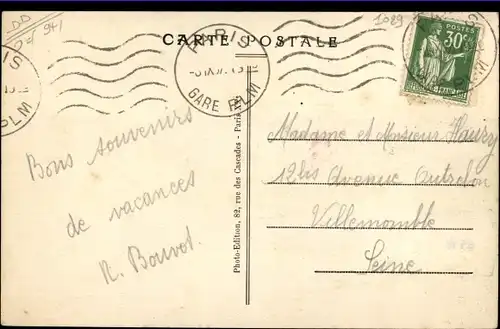 DD
941
1029
CARTE POSTALE
PARIS
GARE PLM
POSTES
30c
IS
PLM
Bons souvenirs
de vacances
R. Bouvet.
Photo-Edition, 82, rue des Cascades - Paris
Madame et Monsieur
12bis Avenue
Villemomble
Seine